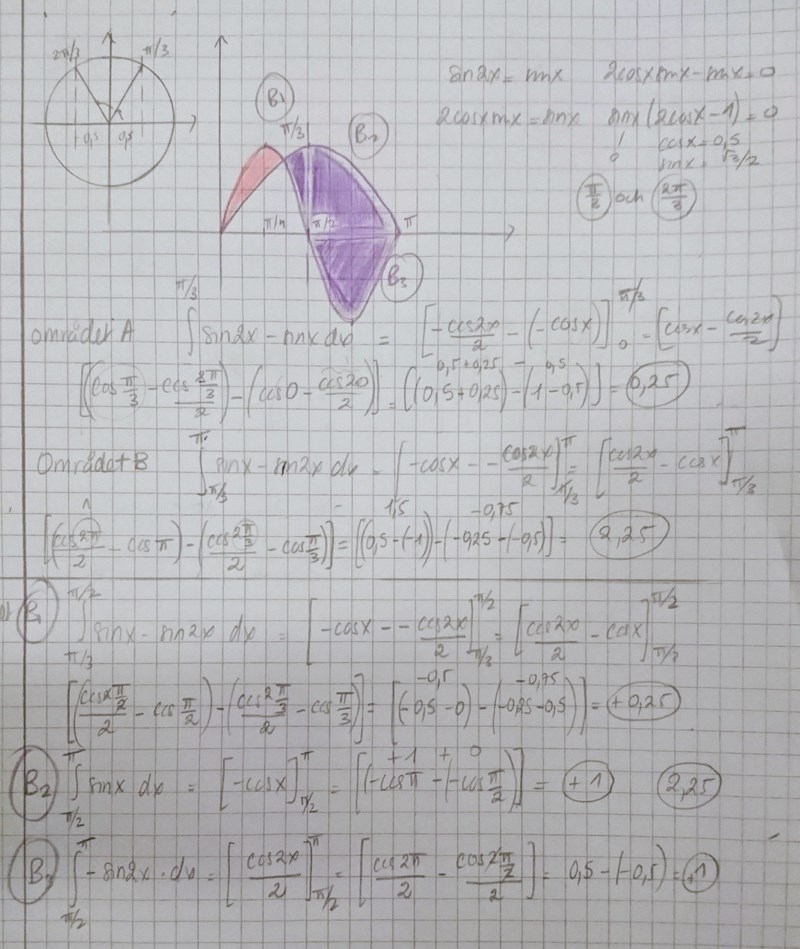 2π/3 π/3
0,5 0,5
B1
π/3
B2
π/4 π/2 π
B3
sin2x = sinx 2cosxsinx - sinx = 0
2cosxsinx = sinx sinx(2cosx - 1) = 0
0 cosx = 0,5
sinx = √3/2
π/3 och 2π/3
området A ∫ π/3 sin2x - sinx dx = [-cos2x/2 - (-cosx)] π/3 0 = [cosx - cos2x/2]
0,5+0,25 - 0,5
[(cos π/3 - cos 2π/3 /2) - (cos0 - cos20/2)] = [(0,5+0,25) - (1-0,5)] = 0,25
Området B ∫ π π/3 sinx - sin2x dx = [-cosx - - cos2x/2] π π/3 = [cos2x/2 - cosx] π π/3
1 1,5 -0,75
[(cos2π/2 - cosπ) - (cos2π/3 /2 - cos π/3)] = [(0,5-(-1)) - (-0,25-(-0,5)] = 2,25
B1 ∫ π/2 π/3 sinx - sin2x dx = [-cosx - - cos2x/2] π/2 π/3 = [cos2x/2 - cosx] π/2 π/3
-0,5 -0,75
[(cos2π/2 /2 - cos π/2) - (cos2π/3 /2 - cos π/3)] = [(-0,5-0) - (-0,25-0,5))] = +0,25
+1 + 0
B2 ∫ π π/2 sinx dx = [-cosx] π π/2 = [(-cosπ - (-cos π/2)] = +1 2,25
∫ π π/2 -sin2x · dx = [cos2x/2] π π/2 = [cos2π/2 - cos2π/2 /2] = 0,5-(-0,5) = 1